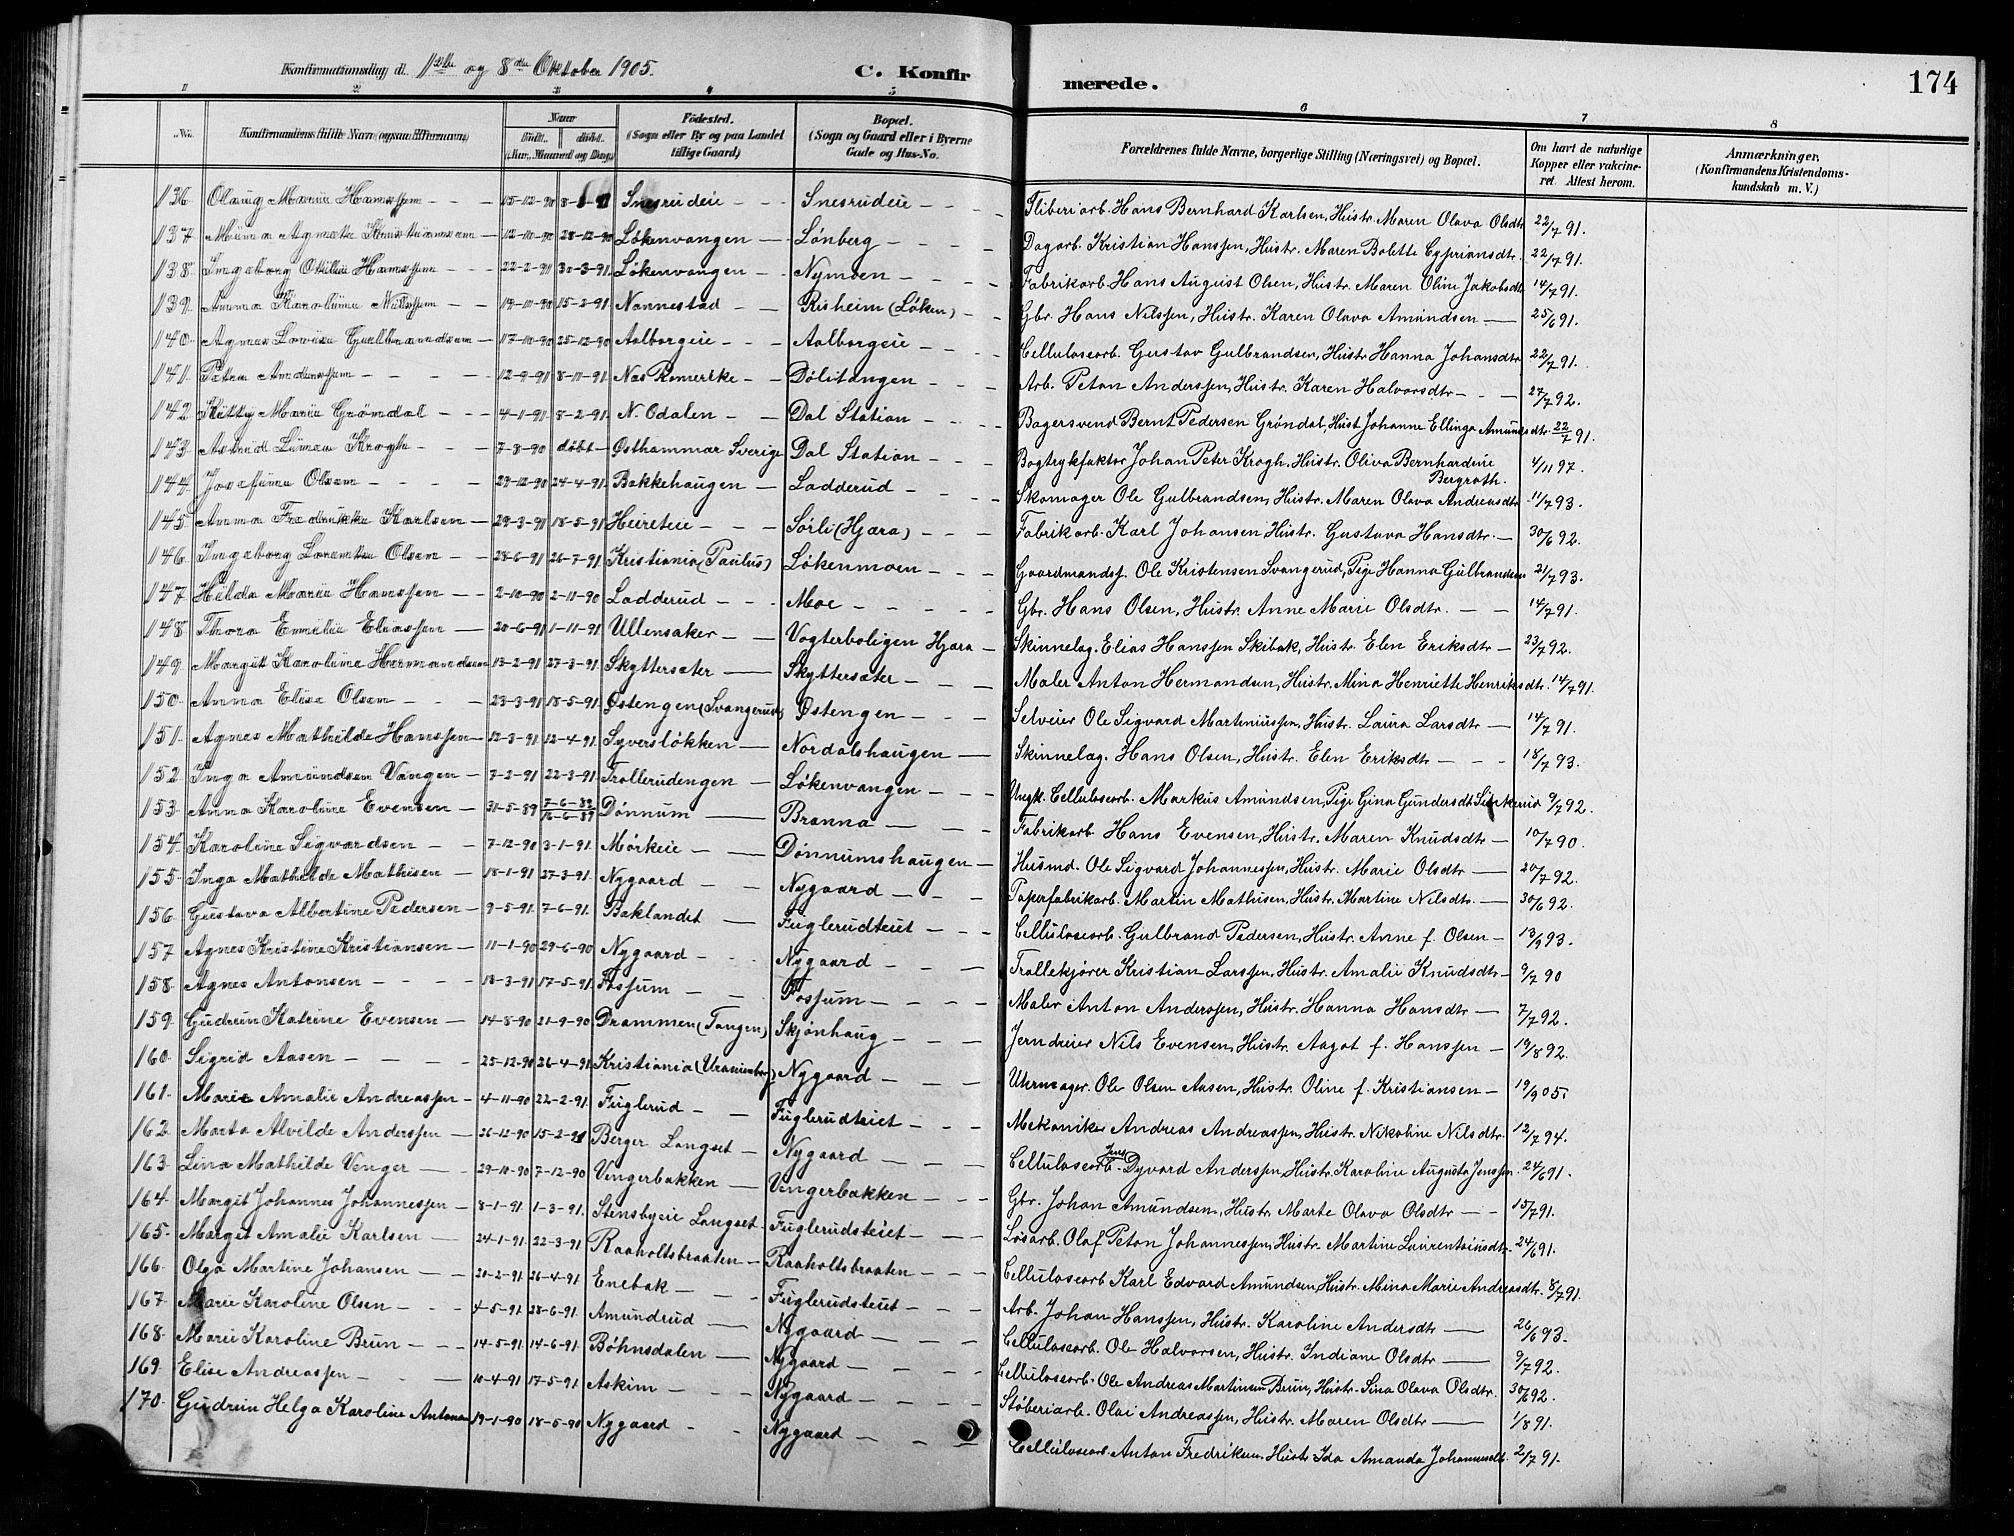 Konfirmationsdag d. 1ste og 8de Oktober 1905.
C. Konfir
merede.
174
1 2 3 4 5 6 7 8
No.
Konfirmandens fulde Navn (ogsaa Efternavn)
Naar
født. døbt.
(Aar, Maaned og Dag.)
Fødested.
(Sogn eller By og paa Landet tillige Gaard)
Bopæl.
(Sogn og Gaard eller i Byerne Gade og Hus-No.
Forældrenes fulde Navne, borgerlige Stilling (Næringsvei) og Bopæl.
Om havt de naturlige Kopper eller vakcineret. Attest herom.
Anmærkninger,
(Konfirmandens Kristendomskundskab m. V.)
136. Olaug Marie Hanssen 15-12-90 Snesrudeie Snesrudeie Støberiarb. Hans Bernhard Karlsen, Hustr. Maren Olava Olsdtr 22/7 91.
137. Agnete Kristiansen 12-10-90 28-12-90 Løkenvangen Lønberg Dagarb. Kristian Hanssen, Hustr. Maren Bolette Cypriansdtr. 22/7 91.
138. Ingeborg Otilie Hanssen 22-2-91 30-3-91. Løkenvangen Nymoen Fabrikarb. Hans August Olsen, Hustr. Maren Oline Jakobsdtr 14/7 91.
139. Anna Karoline Nilssen 19-10-90 15-2-91 Nannestad Risheim (Løken) Gbr. Hans Nilssen, Hustr. Karen Olava Amundsen 25/6 91.
140. Agnes Lovise Gulbrandsen 17-10-90 25-12-90 Aalborgeie Aalborgeie Cellulosearb. Gustav Gulbrandsen, Hustr Hanna Johansdtr 22/7 91.
141. Petra Anderssen 12-9-91 8-11-91. Nas Romerike Dølitangen Arb. Peton Anderssen, Hustr. Karen Halvorsdtr 27/7 92.
142. Kitty Marie Grøndal 4-1-91. 8-2-91. N. Odalen Dal Station Bagersvend Bernt Pedersen Grøndal, Hust Johanne Ellinga Amundsdtr. 22/7 91.
143. Astrid Linea Krogh 7-8-90 døbt Østhammar Sverige Dal Station Bogtrykfaktor Johan Peter Krogh, Hustr. Oliva Bernhardine Bergroth. 4/11 97.
144. Josefine Olsen 29-12-90 24-4-91. Bakkehaugen Ladderud Skomager Ole Gulbrandsen, Hustr. Maren Olava Andreasdtr 11/7 93.
145. Anna Fredrikke Karlsen 29-3-91 18-5-91 Heireteie Sørli (Hjæra) Fabrikarb. Karl Johansen Hustr. Gustava Hansdtr. 30/6 92.
146. Ingeborg Lorentse Olsen 28-6-91 26-7-91. Kristiania (Paulus) Løkenmoen Gaardmandss. Ole Kristensen Svangerud, Pige Hanna Gulbrandsen 21/7 93.
147. Hilda Marie Hanssen 2-10-90 2-11-90 Ladderud Moe Gbr. Hans Olsen, Hustr. Anne Marie Olsdtr. 14/7 91.
148. Thora Emilie Eliassen 20-6-91 1-11-91. Ullensaker Vogterboligen Hjæra Skinnelæg. Elias Hanssen Skibak, Hustr. Elen Eriksdtr 23/7 92.
149. Margit Karoline Hermandsen 13-2-91 27-3-91. Skyttersæter Skyttersæter Maler Anton Hermandsen, Hustr. Mina Henriette Henriksdtr. 14/7 91.
150. Anna Elise Olsen 23-3-91 18-5-91. Østengen (Svangerud) Østengen Selveier Ole Sigvard Martiniussen, Hustr. Laura Larsdtr 14/7 91.
151. Agnes Mathilde Hanssen 12-3-91. 12-4-91. Syversløkken Nordalshaugen Skinnelæg. Hans Olsen, Hustr. Elen Eriksdtr 18/7 93.
152. Inga Amundsen Vangen 7-2-91 22-3-91. Trollerudengen Løkenvangen Ungk. Cellulosearb. Markus Amundsen, Pige Gina Gundersdtr 9/7 92.
153. Anna Karoline Evensen 31-5-89 7-6-89 16-6-89 Dønnum Brænna Fabrikarb Hans Evensen, Hustr. Maren Knudsdtr 10/7 90.
154. Karoline Sigvardsen 7-12-90 3-1-91. Mørkeie Dønnumshaugen Husmd. Ole Sigvard Johannessen, Hustr. Marie Olsdtr 20/7 92.
155. Inga Mathilde Mathisen 18-1-91 27-3-91. Nygaard Nygaard Papirfabrikarb. Martin Mathisen, Hustr. Martine Nilsdtr. 30/6 92.
156. Gustava Albertine Pedersen 9-5-91. 7-6-91. Baklandet Fuglerudteiet Cellulosearb. Gulbrand Pedersen, Hustr. Anne f. Olsen 13/9 93.
157 Agnes Kristine Kristiansen 11-1-90 29-6-90 Nygaard Nygaard Trallekjører Kristian Larssen, Hustr. Amalie Knudsdtr 9/7 90
158. Agnes Antonsen 18-3-91 17-5-91. Fossum Fossum Maler Anton Anderssen, Hustr. Hanna Hansdtr 7/7 92.
159. Gudrun Katrine Evensen 14-8-90 21-9-90 Drammen (Tangen) Skjønhaug Jerndreier Nils Evensen, Hustr. Aagot f. Hanssen 19/8 92.
160. Sigrid Aasen 25-12-90 26-4-91. Kristiania (Uranienborg) Nygaard Uhrmager. Ole Olsen Aasen, Hustr. Oline f. Kristiansen 19/9 05.
161. Marie Amalie Andreassen 4-11-90 22-2-91. Fuglerud Fuglerudteiet Mekaniker Andreas Andreassen, Hustr. Nikoline Nilsdtr. 12/7 94.
162. Marta Alvilde Anderssen 26-12-90 15-2-91 Berger Langset Nygaard Cellulosearb. Jens Dyvard Anderssen, Hustr. Karoline Augusta Jenssen. 24/6 91.
163. Lina Mathilde Venger 29-10-90 7-12-90 Vengerbakken Vengerbakken Gbr. Johan Amundsen, Hustr Marte Olava Olsdtr 15/7 91.
164. Margit Johannes Johannessen 8-1-91. 1-3-91. Stensbyeie Langset Fuglerudsteiet Løsarb. Olaf Peton Johannessen, Hustr. Martine Laurentsiusdtr. 24/6 91.
165. Margit Amalie Karlsen 24-1-91. 22-3-91 Raaholtsbraaten Raaholtsbraaten Cellulosearb Karl Edvard Amundsen, Hustr. Mina Marie Andreasdtr. 8/7 91.
166. Olga Martine Johansen 20-2-91. 26-4-91. Enebak Fuglerudsteiet Arb. Johan Hanssen, Hustr. Karoline Andersdtr 26/6 93.
167. Marie Karoline Olsen 4-5-91. 28-6-91. Amundrud Nygaard Cellulosearb. Ole Halvorsen, Hustr. Indiane Olsdtr 9/7 92.
168. Marie Karoline Brun 14-5-91. 14-6-91. Bøhnsdalen Nygaard Cellulosearb. Ole Andreas Martinsen Brun, Hustr. Sina Olava Olsdtr. 30/6 92.
169. Elise Andreassen 10-4-91 17-5-91. Askim Nygaard Støberiarb. Olai Andreassen, Hustr. Maren Olsdtr 1/8 91.
170. Gudrun Helga Karoline Antonsen 19-1-90 18-5-90 Nygaard Nygaard Cellulosearb. Anton Fredriksen, Hustr Ida Amanda Johannesdtr. 2/7 91.